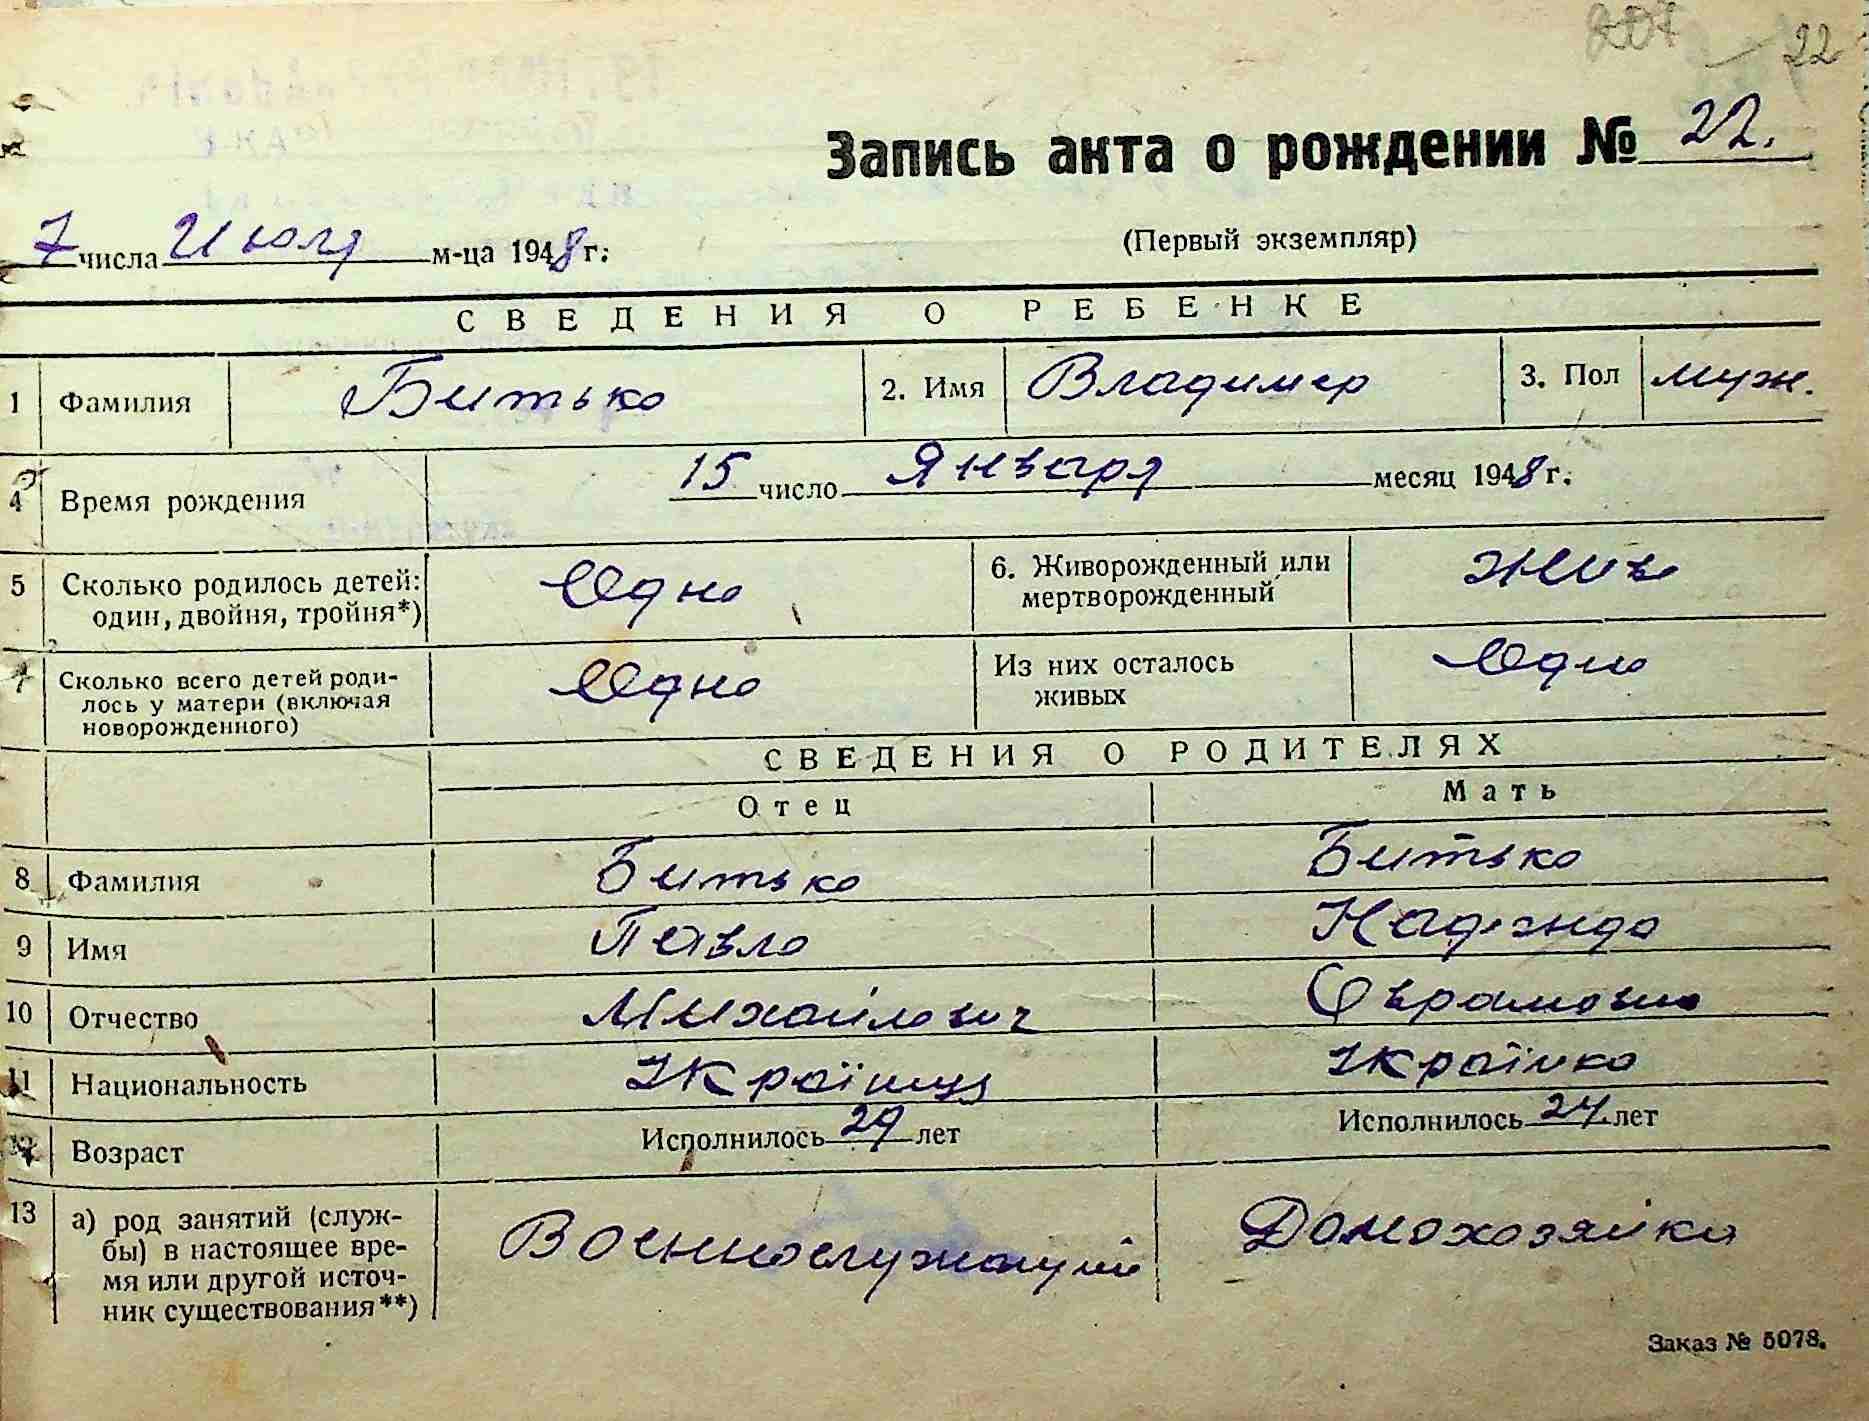 207 22
Запись акта о рождении № 22.
7 числа Июля м-ца 1948 г.
(Первый экземпляр)
СВЕДЕНИЯ О РЕБЕНКЕ
1 Фамилия Битько 2. Имя Владимер 3. Пол муж.
4 Время рождения 15 число Января месяц 1948 г.
5 Сколько родилось детей: Одно 6. Живорожденный или Живо
один, двойня, тройня*) мертворожденный
Сколько всего детей роди- Одно Из них осталось Одно
лось у матери (включая живых
новорожденного)
СВЕДЕНИЯ О РОДИТЕЛЯХ
Отец Мать
8 Фамилия Битько Битько
9 Имя Павло Надежда
10 Отчество Михайлович
11 Национальность Українец Українка
Возраст Исполнилось 29 лет Исполнилось 24 лет
13 а) род занятий (служ- Военнослужащий Домохозяйка
бы) в настоящее вре-
мя или другой источ-
ник существования**)
Заказ № 5078.